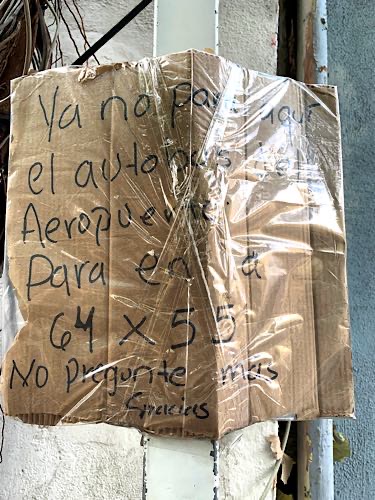 Ya no para aqui
el autobus del
Aeropuerto
Para en la
64 X 55
No Pregunte mas
Gracias